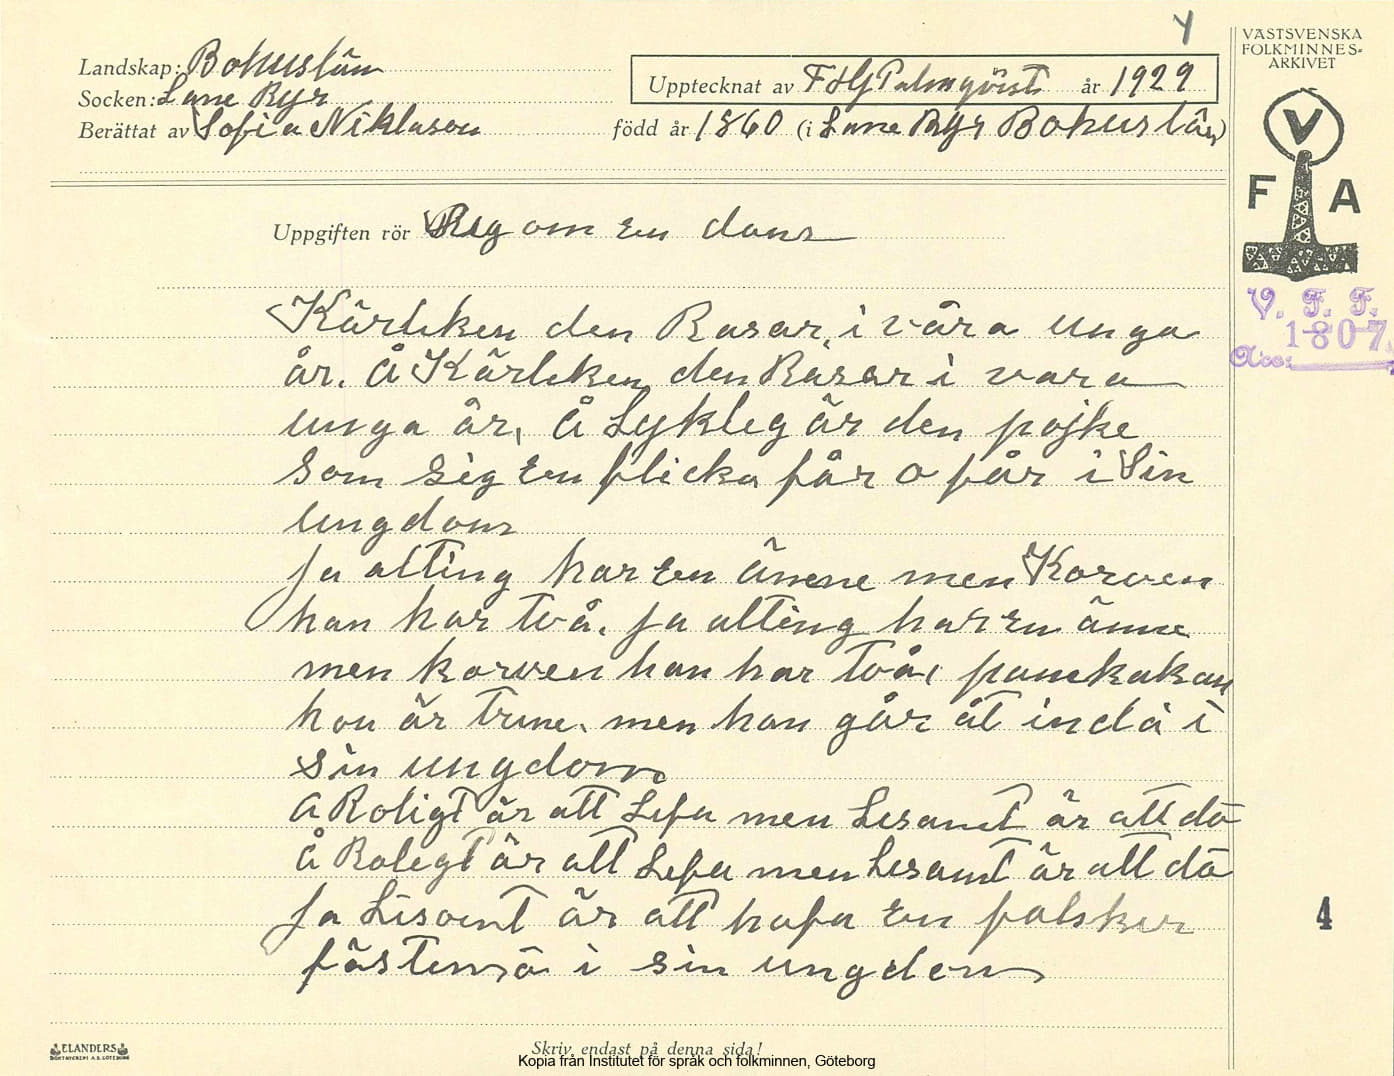 4
VÄSTSVENSKA
FOLKMINNES-
ARKIVET
Landskap: Bohuslän
Upptecknat av F H G Palmqvist år 1929
Socken: Lane Ryr
Berättat av Sofia Niklason född år 1860 (i Lane Ryr Bohuslän)
V
F A
Uppgiften rör Reg om en dans
V. F. F.
1807
Acc:
Kärleken den Rasar, i våra unga
år. Å Kärleken den Rasar i vara
unga år, Å Lykleg är den pojke
Som Sig En flicka får o får i Sin
ungdom
Ja alting har En änne men Korven
han har två. Ja alting har En änne
men korven han har två, panekakan
hon är trine. men han går åt indå i
sin ungdom
A Roligt är att Lefa men Lesamt är att dö
Å Rolegt är att Lefa men Lesamt är att dö
Ja Lisamt är att hafa En falsker
fästemö i sin ungdom
4
ELANDERS
BOKTRYCKERI A.B. GÖTEBORG
Skriv endast på denna sida!
Kopia från Institutet för språk och folkminnen, Göteborg